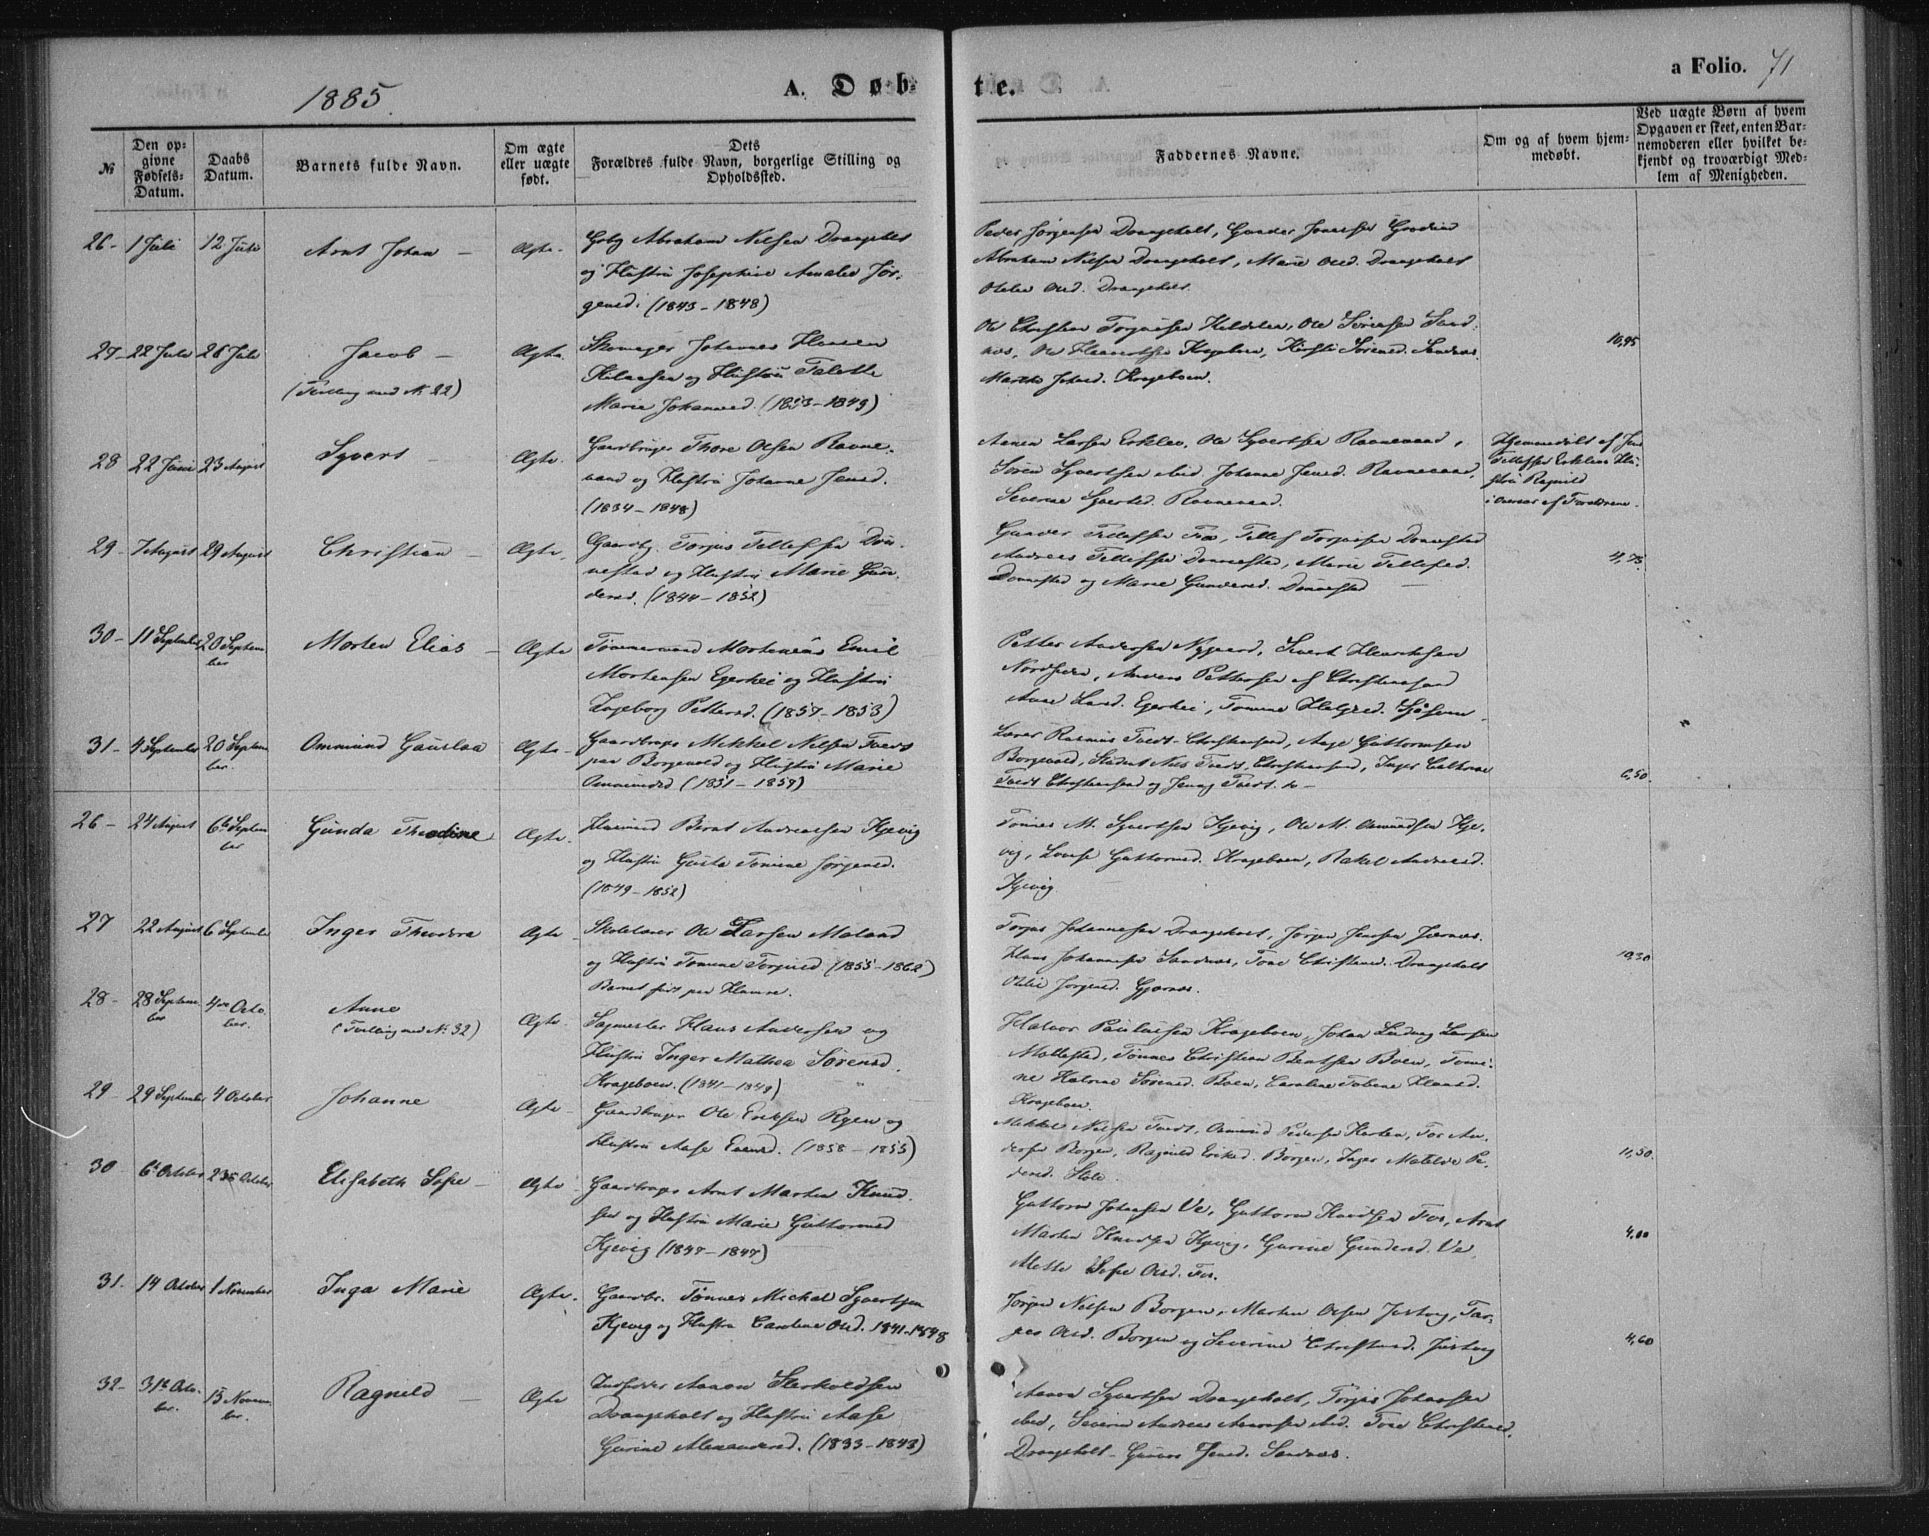 1885.
A. Døb-
te.
a Folio. 71
№
Den op-
givne
Fødsels-
Datum.
Daabs
Datum.
Barnets fulde Navn.
Om ægte
eller uægte
født.
Dets
Forældres fulde Navn, borgerlige Stilling og
Opholdssted.
Faddernes Navne.
Om og af hvem hjem-
medøbt.
Ved uægte Børn af hvem
Opgaven er skeet, enten Bar-
nemoderen eller hvilket be-
kjendt og troværdigt Med-
lem af Menigheden.
26- 1 Juli 12 Juli Arnt Johan — Ægte- Abraham Nilsen Drangeholt
og Hustru Josephine Amalie Jør-
gensd. (1843-1848)
Peder Jørgensen Drangeholt, Gunder
Abraham Nilsen Drangeholt, Marie Olsd. Drangeholt
Otelie Olsd. Drangeholt.
27- 22 Juli 26 Juli Jacob —
(Tvilling med N. 22)
Ægte Johannes Hansen
og Hustru
Marie (1853-1849)
Ole Christian Torjussen Ole Sørensen Sand-
nes, Ole Krageboen, Kirsti Sørensd. Sandnes
Marthe Krageboen.
10,95
28 22 Juni 23 August Syvert — Ægte. Gaardbruger Thore Olsen Ravne-
vand og Hustru Johanne Jensd.
(1834-1848)
Larsen Erklev, Ole Syvertsen Ravnevand,
Søren Syvertsen ibid, Johanne Jensd. Ravnevand,
Severine Syvertsd. Ravnevand.
Hjemmedøbt af Jens
Tellefsen Erklevs Hu-
stru Ragnild
i Overvær af Forældrene.
29- 7 August 29 August Christian — Ægte. Gaardbr. Torjus Tellefsen Døn-
nestad og Hustru Marie Gun-
dersd. (1844-1852)
Gunder Tellefsen Foss, Tellef Torjusen Dønnestad
Andreas Tellefsen Dønnestad, Marie Tellefsd.
Dønnestad og Marie Gundersd. Dønnestad
4,73.
30- 11 September 20 Septem-
ber
Morten Elias — Ægte Tømmermand Martinius Emil
Mortensen Egerhei og Hustru
Ingeborg Pettersd. (1857-1853)
Petter Andersen Nygaard, Sivert Henriksen
Anders Pettersen af Christianssand
Anne Larsd. Egerhei, Tomine Helgesd.
31- 4 September 20 Septem-
ber.
Ommund Gauslaa Ægte- Gaardbruger Mikkel Nilsen Tveit
paa Borgevold og Hustru Marie
Ommundsd (1851-1859)
Lærer Rasmus Tveit-Christianssand, Aage Guttormsen
Borgevold, Student Nils Tveit, Christianssand, Inger Cathrine
Tveit Christianssand og Jenny Tveit.
6,50.
26- 24 August 6te Septem-
ber
Gunda Theodine Ægte. Husmand Bernt Andreassen Kjevig
og Hustru Gusta Tomine Jørgensd.
(1849-1852)
Tønnes M. Syvertsen Kjevig, Ole M. Osmundsen Kje-
vig, Louise Guttormsd. Krageboen, Rakel Andreasd.
Kjevig
27 22 August 6 September Inger Theodora Ægte- Skolelærer Ole Larsen Moland
og Hustru Tomine Torjusd (1855-1862)
Barnet født paa Hamre.
Torjus Johannesen Drangeholt, Jørgen Jensen
Hans Johannesen Sandnes, Tone Christensd. Drangeholt
Otilie Jørgensd. Gjærnes.
10,30
28- 28 Septem-
ber
4de Octo-
ber.
Anne
(Tvilling med N. 32)
Ægte- Sagmester Hans Andersen og
Hustru Inger Mathea Sørensd.
Krageboen. (1841-1849)
Halvor Paulusen Krageboen, Johan Ludvig Larsen
Møllested, Tønnes Christian Berntsen Boen, Tomi-
ne Katrine Sørensd. Boen, Caroline Tobine Hansd.
Krageboen.
29- 29 September 4 October Johanne Ægte- Gaardbruger Ole Eriksen Ryen og
Hustru Aase Evensd. (1858-1855)
Mikkel Nilsen Tveit, Osmund Pedersen Hasten, An-
dersen Borgen, Ragnild Eriksd. Borgen, Inger Matilde Pe-
dersd.
11,50.
30 6te October 25 October Elisabeth Sofie — Ægte- Gaardbruger Arnt Martin Knud-
sen og Hustru Marie Guttormsd
Kjevig (1847-1847)
Guttorm Johansen Ve, Guttorm Knudsen Foss, Arnt
Martin Knudsen Kjevig, Gurine Gundersd. Ve
Mette Sofie Olsd. Foss.
4,00
31- 14 October 1 November Inga Marie Ægte. Gaardbr. Tønnes Michal Syvertsen
Kjevig og Hustru Caroline Olsd. 1841-1848
Jørgen Nilsen Borgen, Martin Olsen Justvig, Tor-
Olsd. Borgen og Severine Christensd. Justvig
4,60
32- 31te Octo-
ber.
15 Novem-
ber.
Ragnild — Ægte Inderst Aanon Sterkoldsen
Drangeholt og Hustru Aase
Gurine Alexandersd. (1833-1843)
Aanon Syvertsen Drangeholt, Torjus Johansen
ibid, Severin Andreas Aanonsen ibid. Tone Christensd.
Drangeholt- Jensd. Sandnes.